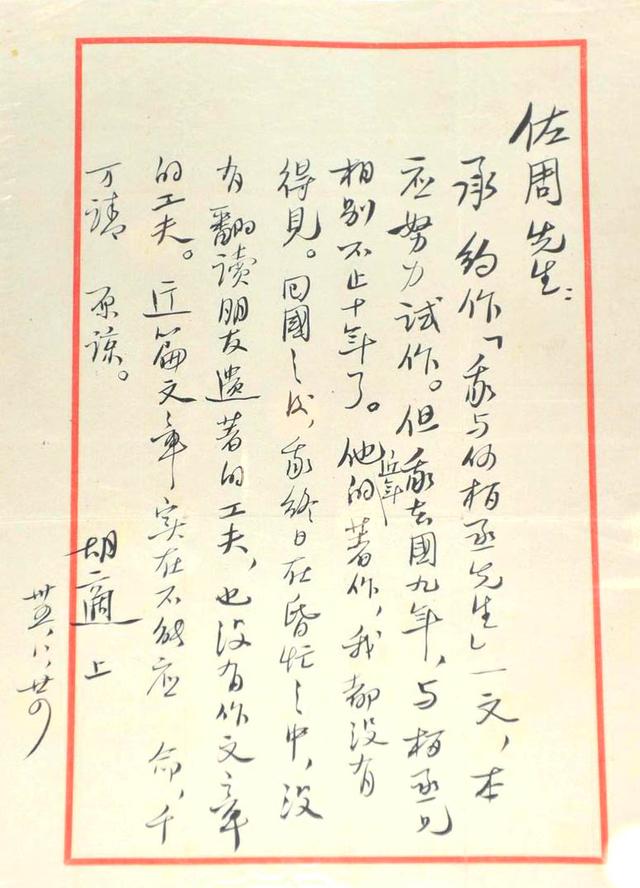 佐周先生：
承 約作「我与何柏丞先生」一文，本
应努力試作。但我去國九年，与柏丞兄
相别不止十年了。他的近年著作，我都没有
得見。回國之后，我終日在昏忙之中，没
有翻讀朋友遺著的工夫，也没有作文章
的工夫。这篇文章实在不能应 命，千
万請 原諒。
胡適 上
卅五、八、廿四